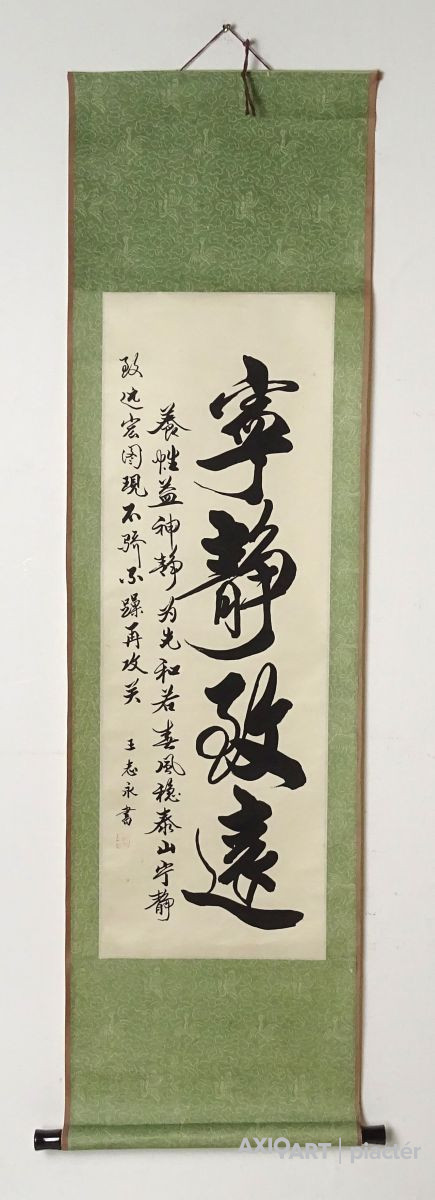 寧靜致遠
养性益神静为先和若春风稳泰山宁静
致远宏图現不骄不躁再攻关
王志永書
AXIOART | piactér